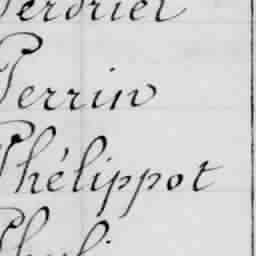 Perdriel
Perrin
Phélippot